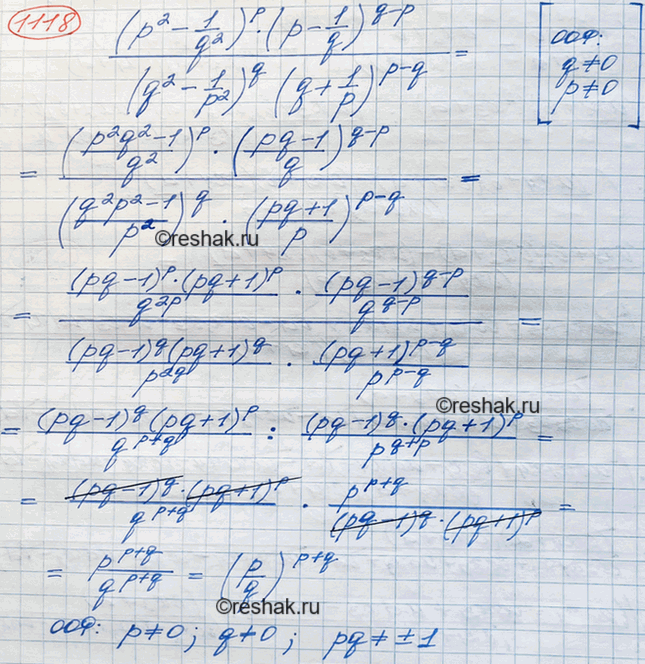 1118
(p² - 1/q²)^p · (p - 1/q)^(q-p) / (q² - 1/p²)^q (q + 1/p)^(p-q) = [ООФ: q ≠ 0 p ≠ 0]
= ((p²q² - 1)/q²)^p · ((pq - 1)/q)^(q-p) / ((q²p² - 1)/p²)^q · ((pq + 1)/p)^(p-q) =
©reshak.ru
= (pq-1)^p · (pq+1)^p / q^(2p) · (pq-1)^(q-p) / q^(q-p) / (pq-1)^q (pq+1)^q / p^(2q) · (pq+1)^(p-q) / p^(p-q) =
©reshak.ru
= (pq-1)^q (pq+1)^p / q^(p+q) : (pq-1)^q · (pq+1)^p / p^(q+p) =
= (pq-1)^q · (pq+1)^p / q^(p+q) · p^(p+q) / (pq-1)^q · (pq+1)^p =
= p^(p+q) / q^(p+q) = (p/q)^(p+q)
©reshak.ru
ООФ: p ≠ 0; q ≠ 0; pq ≠ ±1